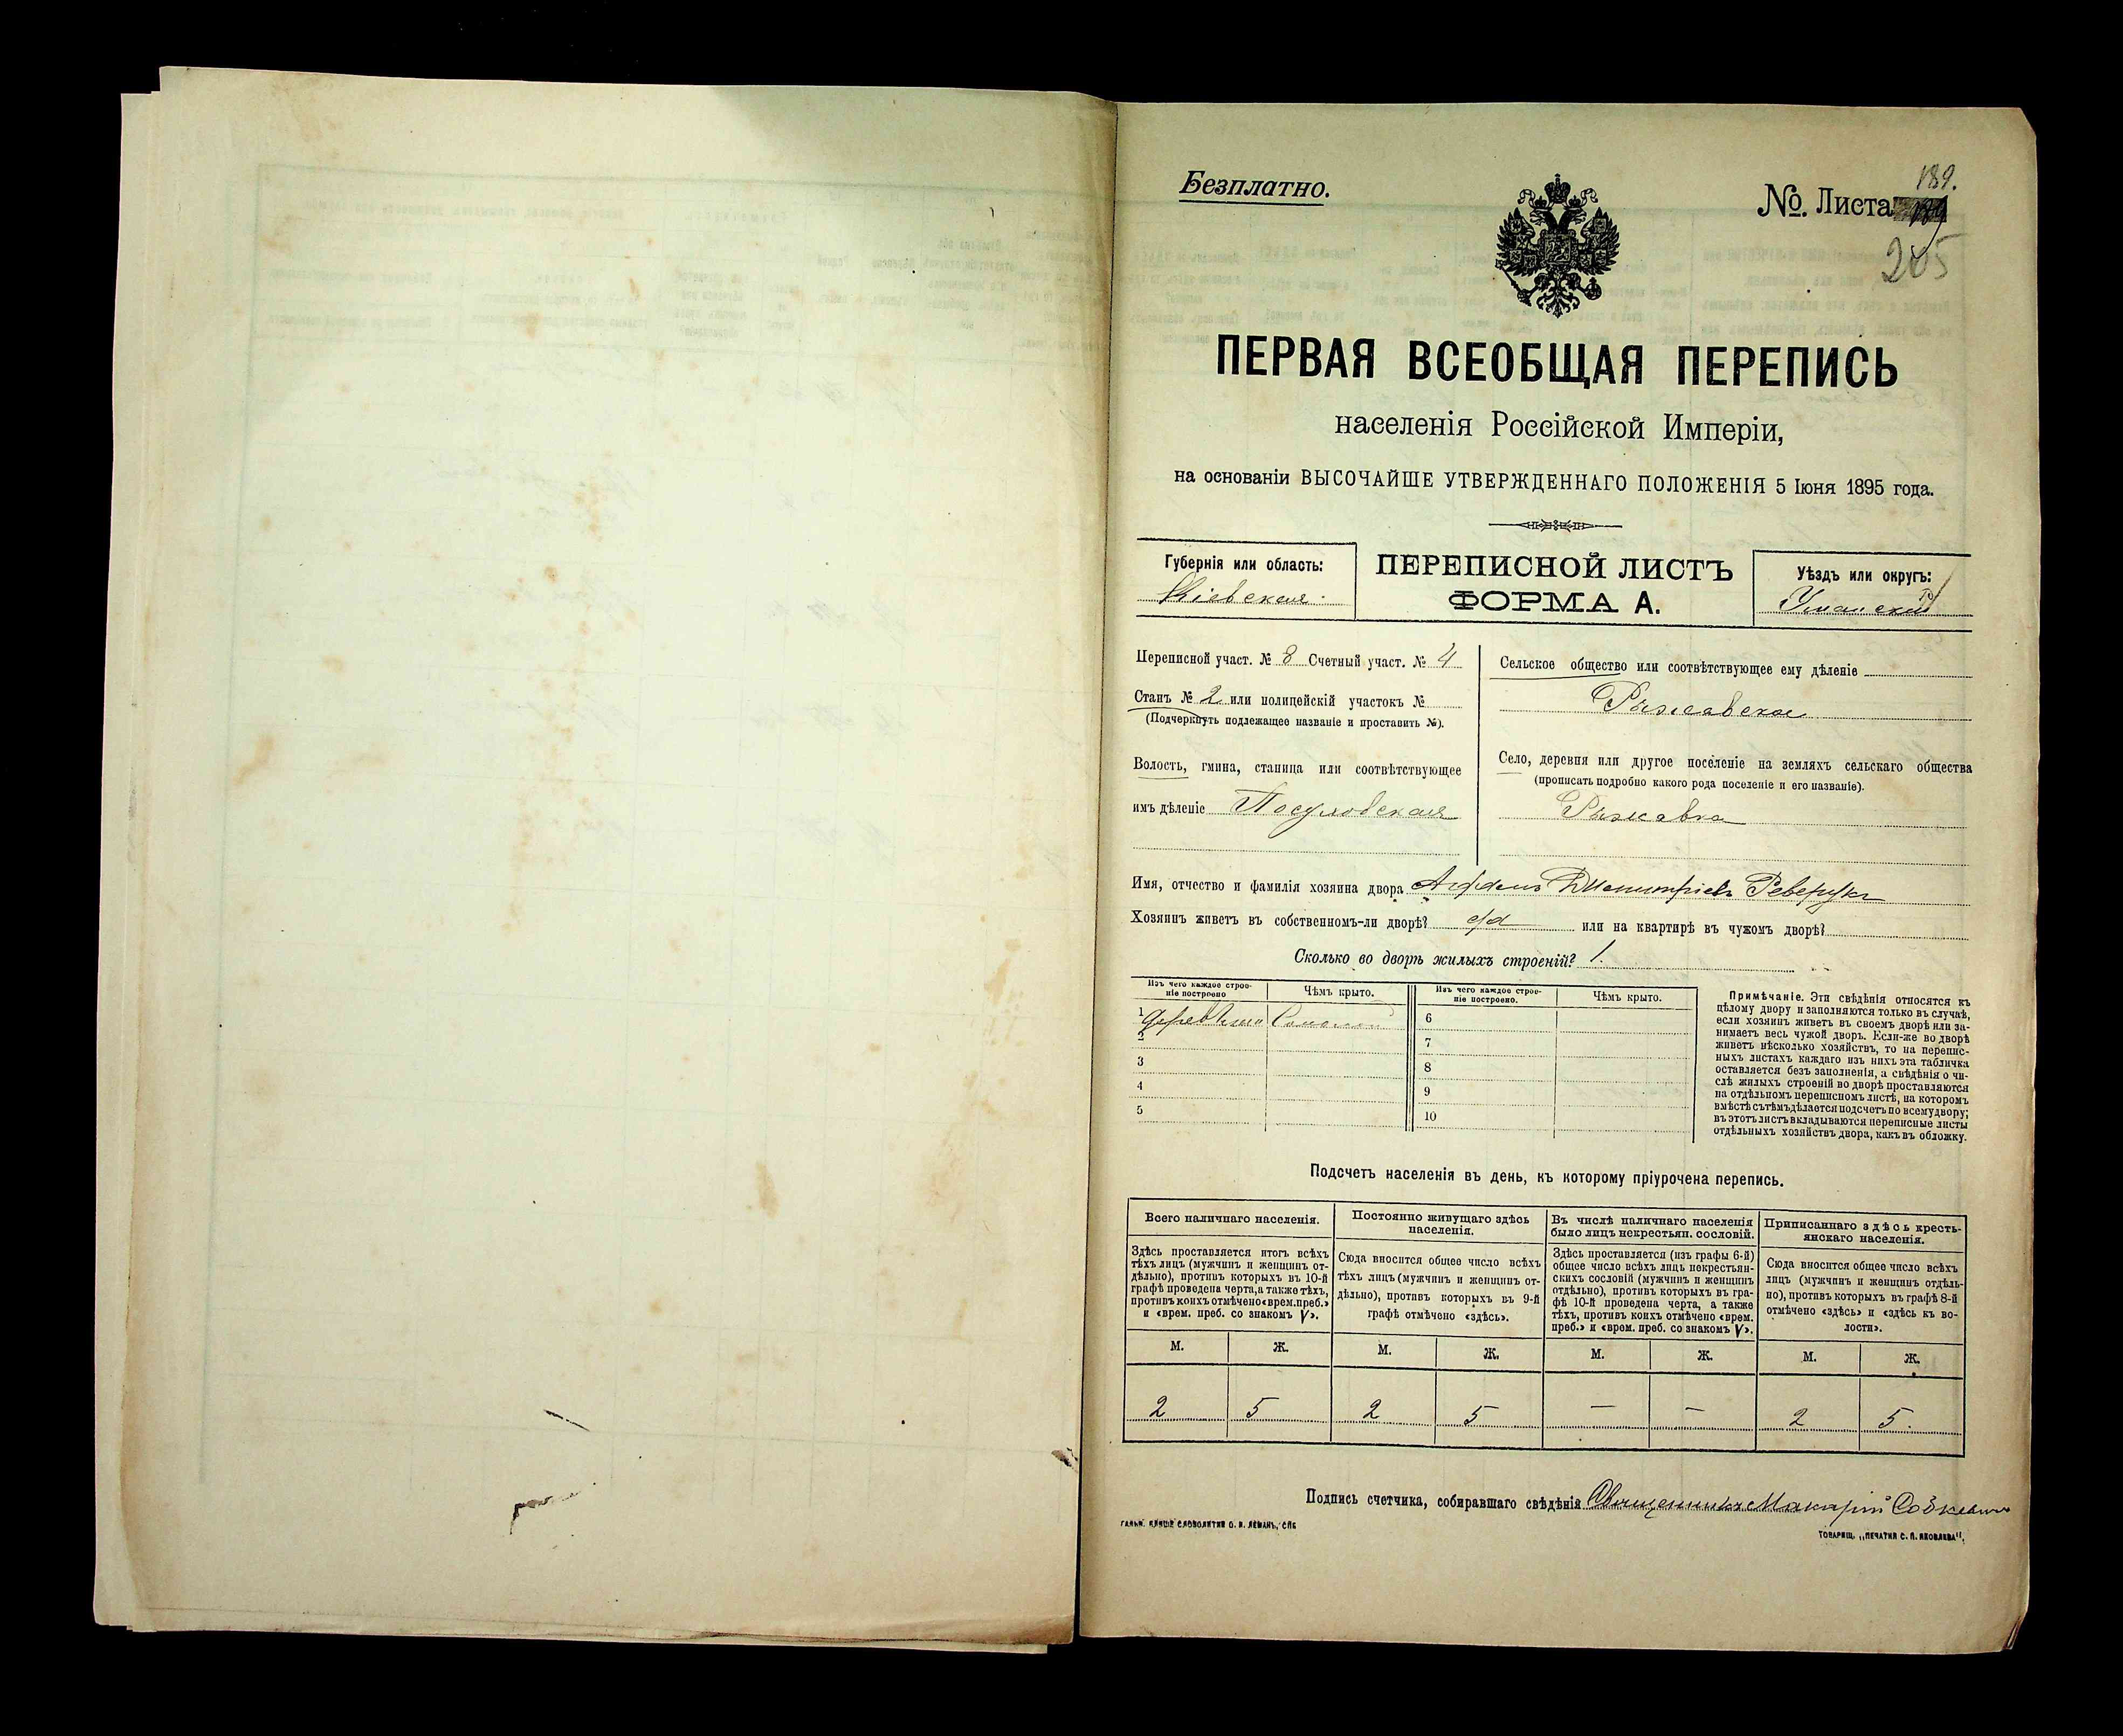 Безплатно.
№. Листа 189.
205
ПЕРВАЯ ВСЕОБЩАЯ ПЕРЕПИСЬ
населенія Россійской Имперіи,
на основаніи ВЫСОЧАЙШЕ УТВЕРЖДЕННАГО ПОЛОЖЕНІЯ 5 Іюня 1895 года.
Губернія или область:
Кіевская
ПЕРЕПИСНОЙ ЛИСТЪ
ФОРМА А.
Уѣздъ или округъ:
Уманский
Переписной участ. № 8 Счетный участ. № 4
Станъ № 2 или полицейскій участокъ №
(Подчеркнуть подлежащее названіе и проставить №).
Волость, гмина, станица или соотвѣтствующее
имъ дѣленіе
Сельское общество или соотвѣтствующее ему дѣленіе
Рыжавское
Село, деревня или другое поселеніе на земляхъ сельскаго общества
(прописать подробно какого рода поселеніе и его названіе).
Рыжавка
Имя, отчество и фамилія хозяина двора
Хозяинъ живетъ въ собственномъ-ли дворѣ? да или на квартирѣ въ чужомъ дворѣ?
Сколько во дворѣ жилыхъ строеній? 1.
Изъ чего каждое строе-
ніе построено
Чѣмъ крыто.
Изъ чего каждое строе-
ніе построено.
Чѣмъ крыто.
1 Соломой
2
3
4
5
6
7
8
9
10
Примѣчаніе. Эти свѣдѣнія относятся къ
цѣлому двору и заполняются только въ случаѣ,
если хозяинъ живетъ въ своемъ дворѣ или за-
нимаетъ весь чужой дворъ. Если-же во дворѣ
живетъ нѣсколько хозяйствъ, то на перепис-
ныхъ листахъ каждаго изъ нихъ эта табличка
оставляется безъ заполненія, а свѣдѣнія о чи-
слѣ жилыхъ строеній во дворѣ проставляются
на отдѣльномъ переписномъ листѣ, на которомъ
вмѣстѣ съ тѣмъ дѣлается подсчетъ по всему двору;
въ этотъ листъ вкладываются переписные листы
отдѣльныхъ хозяйствъ двора, какъ въ обложку.
Подсчетъ населенія въ день, къ которому пріурочена перепись.
Всего наличнаго населенія.
Здѣсь проставляется итогъ всѣхъ
тѣхъ лицъ (мужчинъ и женщинъ от-
дѣльно), противъ которыхъ въ 10-й
графѣ проведена черта, а также тѣхъ,
противъ коихъ отмѣчено «врем. преб.»
и «врем. преб. со знакомъ V».
М. Ж.
2 5
Постоянно живущаго здѣсь
населенія.
Сюда вносится общее число всѣхъ
тѣхъ лицъ (мужчинъ и женщинъ от-
дѣльно), противъ которыхъ въ 9-й
графѣ отмѣчено «здѣсь».
М. Ж.
2 5
Въ числѣ наличнаго населенія
было лицъ некрестьян. сословій.
Здѣсь проставляется (изъ графы 6-й)
общее число всѣхъ лицъ некрестьян-
скихъ сословій (мужчинъ и женщинъ
отдѣльно), противъ которыхъ въ гра-
фѣ 10-й проведена черта, а также
тѣхъ, противъ коихъ отмѣчено «врем.
преб.» и «врем. преб. со знакомъ V».
М. Ж.
— —
Приписаннаго здѣсь кресть-
янскаго населенія.
Сюда вносится общее число всѣхъ
лицъ (мужчинъ и женщинъ отдѣль-
но), противъ которыхъ въ графѣ 8-й
отмѣчено «здѣсь» и «здѣсь къ во-
лости».
М. Ж.
2 5.
Подпись счетчика, собиравшаго свѣдѣнія Священникъ Макарій
ГАЛЬВ. КЛИШЕ СЛОВОЛИТНИ О. И. ЛЕМАНЪ, СПБ
ТОВАРИЩ. „ПЕЧАТНЯ С. П. ЯКОВЛЕВА".